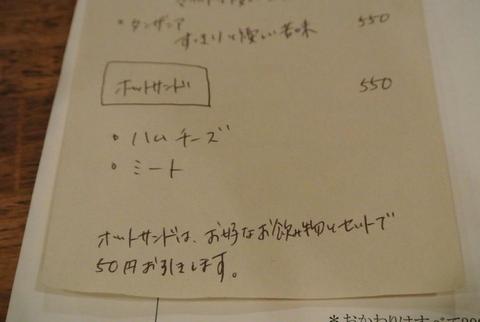 ・タンザニア 550
すっきりと優しい苦味
ホットサンド 550
・ハムチーズ
・ミート
ホットサンドは、お好きなお飲み物とセットで
50円お引きします。
*おかわりはすべて